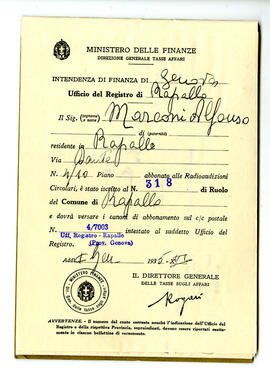 MINISTERO DELLE FINANZE
DIREZIONE GENERALE TASSE AFFARI
INTENDENZA DI FINANZA DI Genova
Ufficio del Registro di Rapallo
Il Sig. (cognome e nome) Marconi Alfonso
di (paternità)
residente in Rapallo
Via Dante
N. 4/10 Piano abbonato alle Radioaudizioni
Circolari, è stato iscritto al N. 318 di Ruolo
del Comune di Rapallo
e dovrà versare i canoni di abbonamento sul c/c postale
N. 4/7003 intestato al suddetto Ufficio del
Uff. Registro - Rapallo
Registro. (Prov. Genova)
193
IL DIRETTORE GENERALE
DELLE TASSE SUGLI AFFARI
MINISTERO FINANZE
AVVERTENZE. - Il numero del conto corrente nonchè l'indicazione dell'Ufficio del
Registro e della rispettiva Provincia, sopraindicati, devono essere riportati esatta-
mente in ciascun bollettino di versamento.